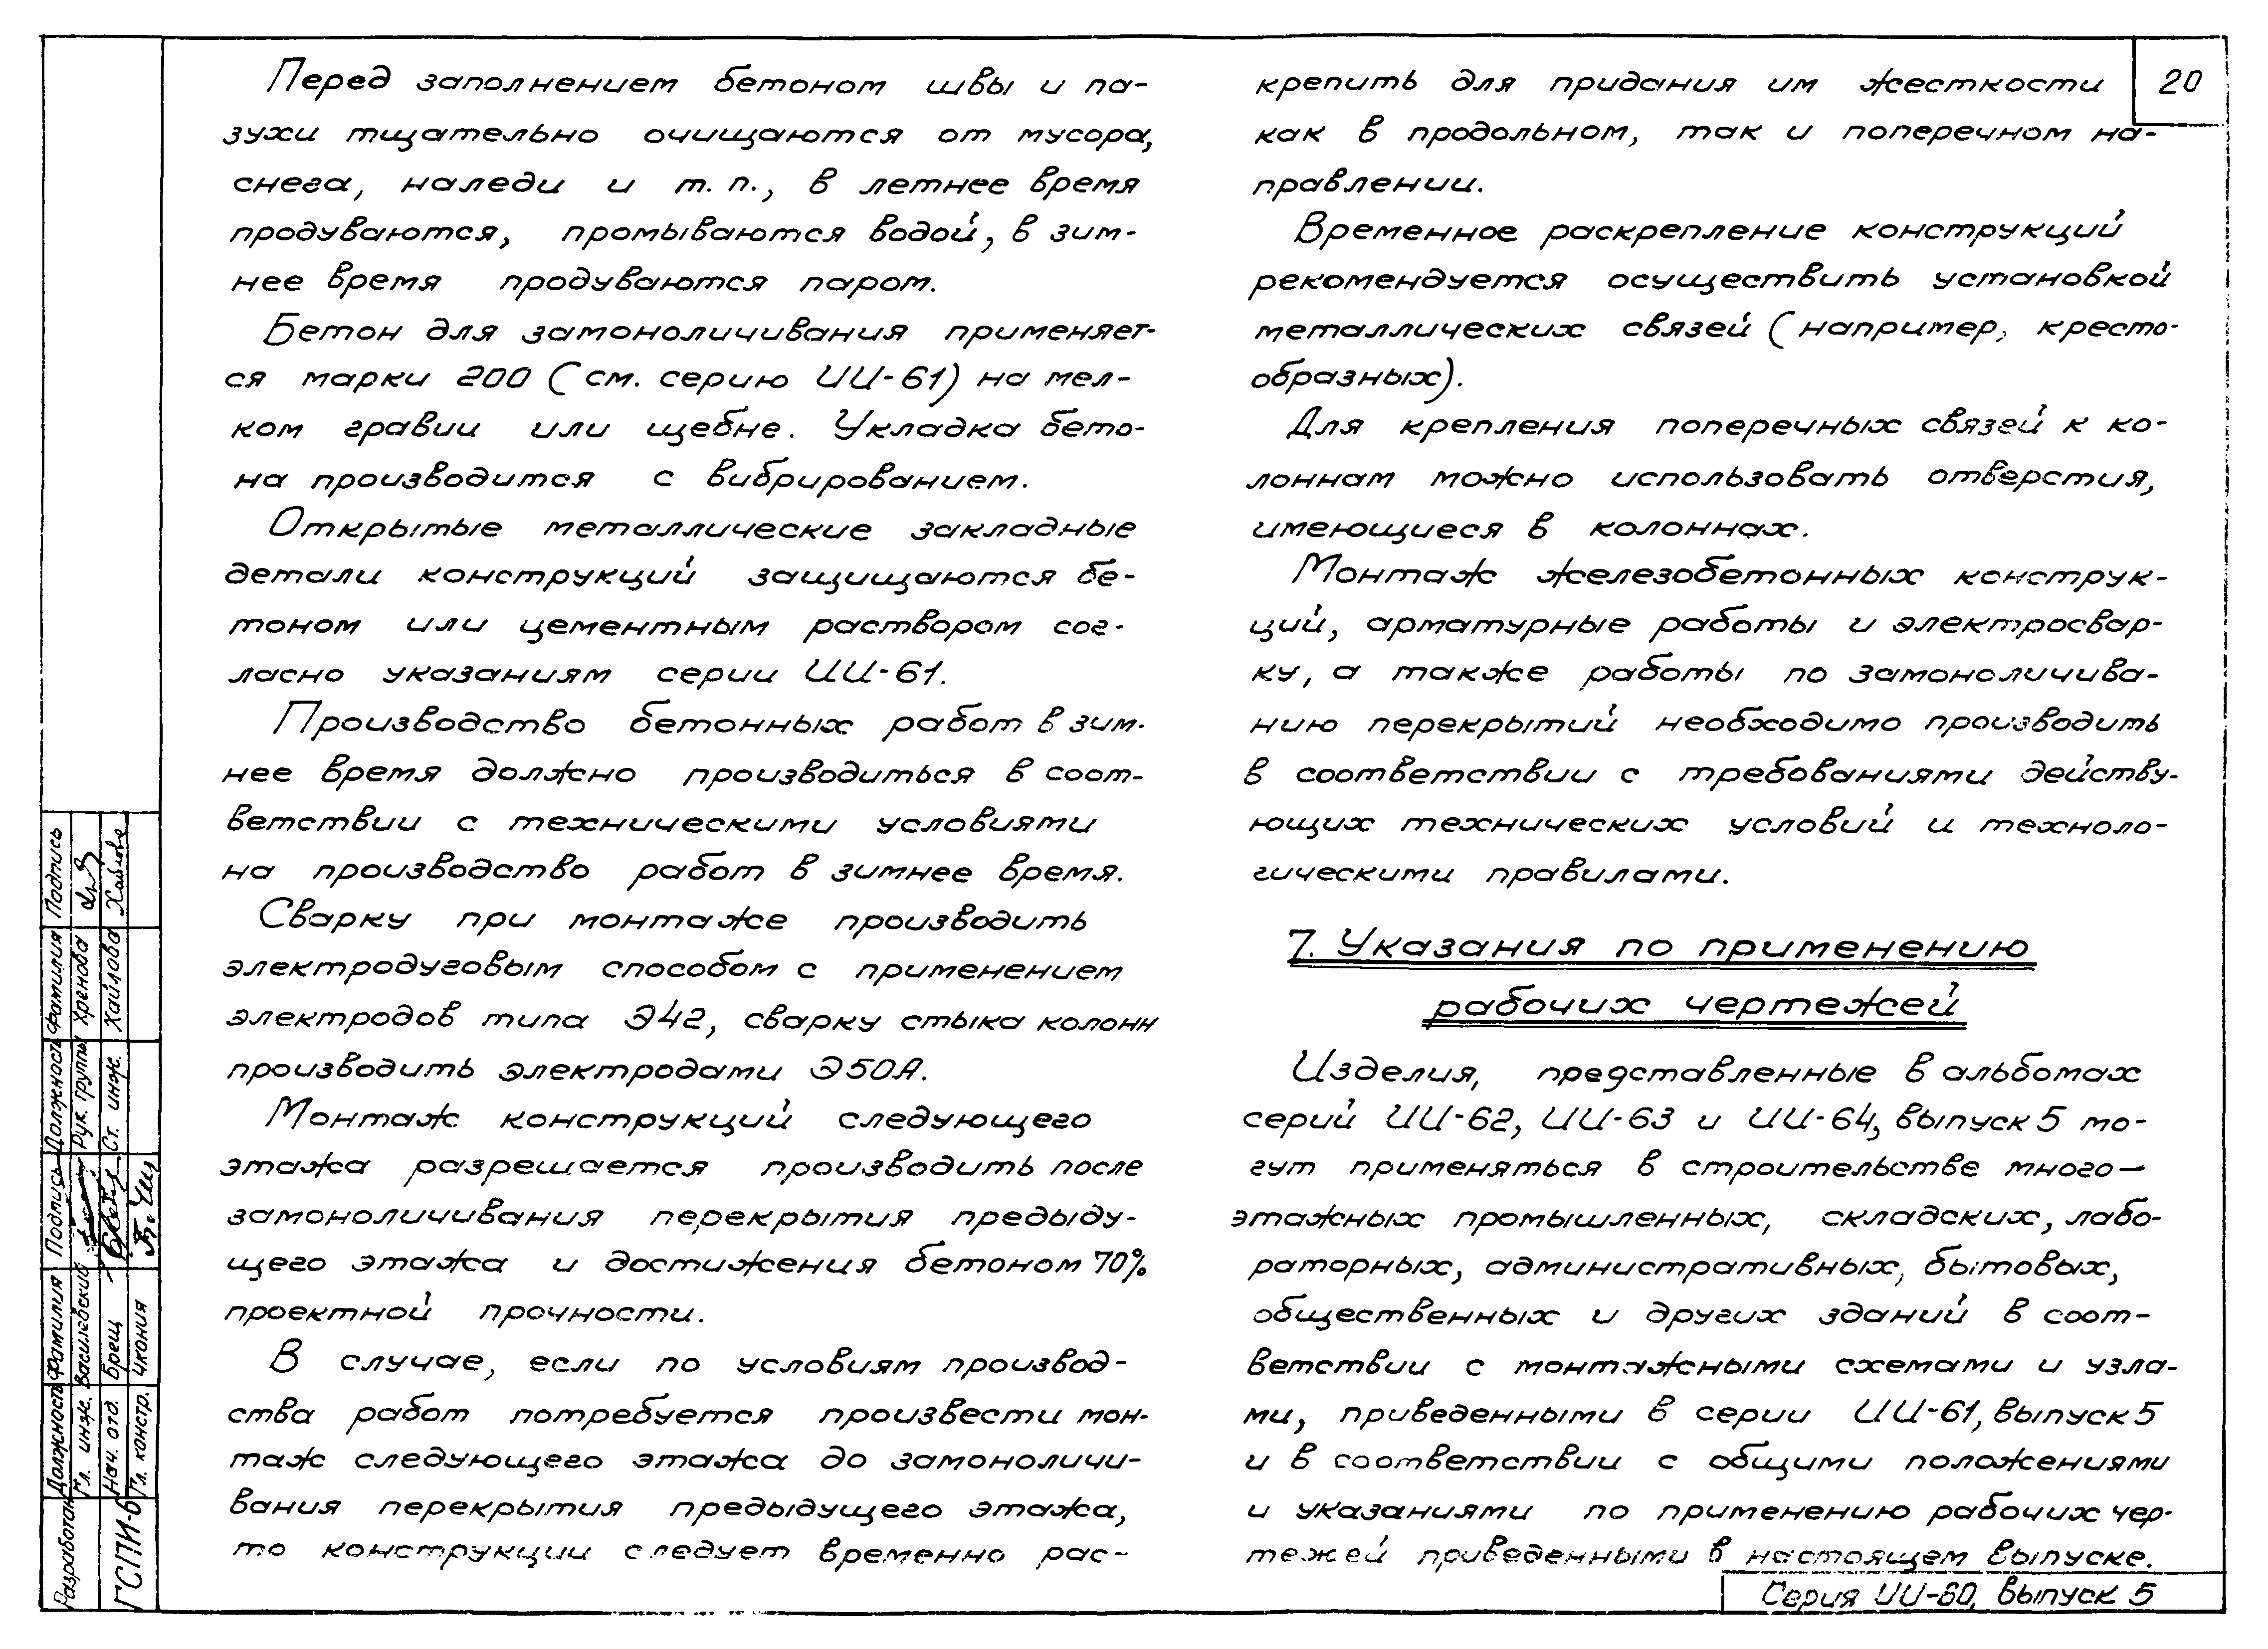 Перед заполнением бетоном швы и па-
зухи тщательно очищаются от мусора,
снега, наледи и т.п., в летнее время
продуваются, промываются водой, в зим-
нее время продуваются паром.
Бетон для замоноличивания применяет-
ся марки 200 (см. серию ИИ-61) на мел-
ком гравии или щебне. Укладка бето-
на производится с вибрированием.
Открытые металлические закладные
детали конструкций защищаются бе-
тоном или цементным раствором сог-
ласно указаниям серии ИИ-61.
Производство бетонных работ в зим-
нее время должно производиться в соот-
ветствии с техническими условиями
на производство работ в зимнее время.
Сварку при монтаже производить
электродуговым способом с применением
электродов типа Э42, сварку стыка колонн
производить электродами Э50А.
Монтаж конструкций следующего
этажа разрешается производить после
замоноличивания перекрытия предыду-
щего этажа и достижения бетоном 70%
проектной прочности.
В случае, если по условиям производ-
ства работ потребуется произвести мон-
таж следующего этажа до замоноличи-
вания перекрытия предыдущего этажа,
то конструкции следует временно рас-
крепить для придания им жесткости
как в продольном, так и поперечном на-
правлении.
Временное раскрепление конструкций
рекомендуется осуществить установкой
металлических связей (например, кресто-
образных).
Для крепления поперечных связей к ко-
лоннам можно использовать отверстия,
имеющиеся в колоннах.
Монтаж железобетонных конструк-
ций, арматурные работы и электросвар-
ку, а также работы по замоноличива-
нию перекрытий необходимо производить
в соответствии с требованиями действу-
ющих технических условий и техноло-
гическими правилами.
7. Указания по применению
рабочих чертежей
Изделия, представленные в альбомах
серий ИИ-62, ИИ-63 и ИИ-64, выпуск 5 мо-
гут применяться в строительстве много-
этажных промышленных, складских, лабо-
раторных, административных, бытовых,
общественных и других зданий в соот-
ветствии с монтажными схемами и узла-
ми, приведенными в серии ИИ-61, выпуск 5
и в соответствии с общими положениями
и указаниями по применению рабочих чер-
тежей приведенными в настоящем выпуске.
20
Серия ИИ-60, выпуск 5
Разработан
ГСПИ-6
Должность Фамилия Подпись Должность Фамилия Подпись
Гл. инж. Василевский Рук. группы Хренова
Нач. отд. Брещ Ст. инж. Хайлова
Гл. констр. Чкония